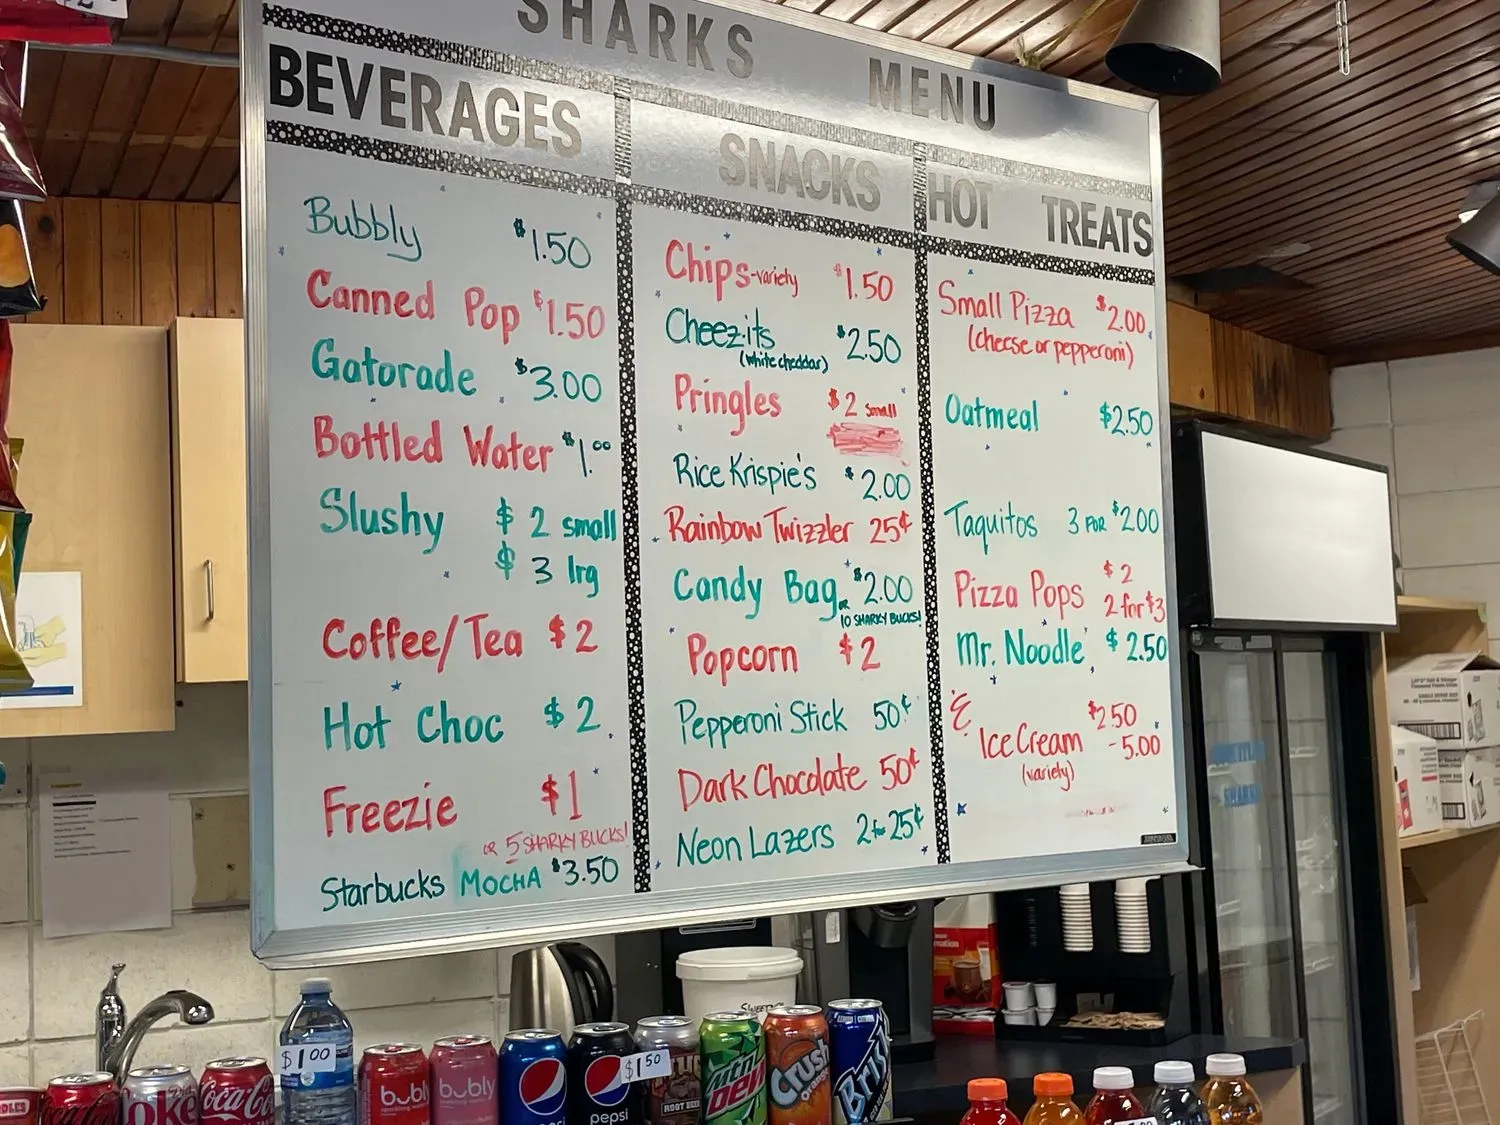 SHARKS MENU
BEVERAGES
Bubbly $1.50
Canned Pop $1.50
Gatorade $3.00
Bottled Water $1.00
Slushy $2 small
$3 lrg
Coffee/Tea $2
Hot Choc $2
Freezie $1
or 5 SHARKY BUCKS!
Starbucks MOCHA $3.50
SNACKS
Chips-variety $1.50
Cheez-its $2.50
(white cheddar)
Pringles $2 small
Rice Krispie's $2.00
Rainbow Twizzler 25¢
Candy Bag $2.00
or 10 SHARKY BUCKS!
Popcorn $2
Pepperoni Stick 50¢
Dark Chocolate 50¢
Neon Lazers 2 for 25¢
HOT TREATS
Small Pizza $2.00
(cheese or pepperoni)
Oatmeal $2.50
Taquitos 3 FOR $2.00
Pizza Pops $2
2 for $3
Mr. Noodle $2.50
& Ice Cream $2.50
- 5.00
(variety)
$1.00
bubly
bubly
pepsi
$1.50
ROOT BEER
Mtn DEW
Crush
Coke
Coca-Cola